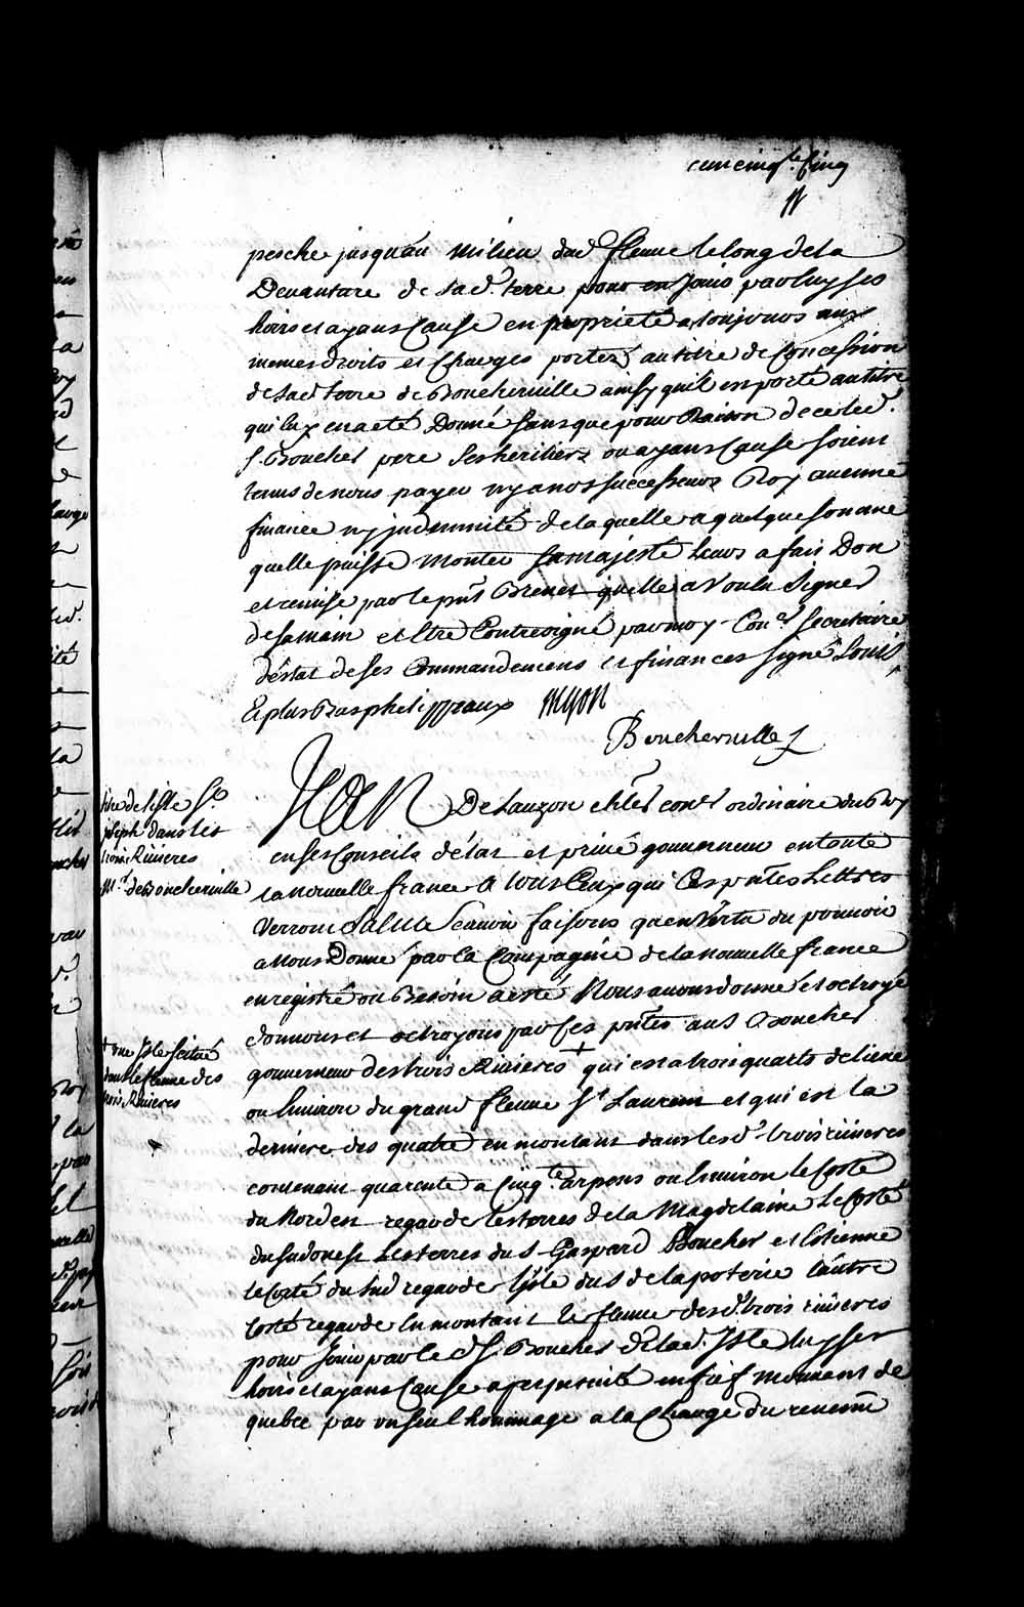 cent cinqte. Cinq
pesche jusqu'au milieu dud fleuve le long de la
Devanture de sad. terre pour en Jouir par luy ses
hoirs et ayans Cause en propriété a toujours aux
mesmes droits et Charges portez au titre de Concession
de sad terre de Boucherville ainsy quil est porté au titre
qui luy en a eté Donné sans que pour Raison de ce led.
S. Boucher pere ses heritiers ou ayans Cause soient
tenus de nous payer ny a nos successeurs Roy aucune
finance ny indemnité de laquelle a quelque somme
quelle puisse monter sa majesté Leurs a fait Don
et remise par le pnt Brevet quelle a Voulu Signer
de sa main et Etre Contresigné par moy Coner Secretaire
d'estat de ses Commandemens et finances signé Louis
Et plus Bas phelippeaux
Boucherville
titre de l'isle St
joseph dans les
trois Rivieres
Mr. de Boucherville
Jean De Lauzon chler coner ordinaire du Roy
en ses Conseils d'état et privé gouverneur en toute
la nouvelle france A tous Ceux qui Ces pntes Lettres
Verront Salut Scavoir faisons qu'en Vertu du pouvoir
a Nous Donné par la Compagnie de la nouvelle france
enregistré ou Besoin a esté Nous avons donné et octroyé
donnons et octroyons par Ces pntes au S Boucher
gouverneur des trois Rivieres + qui est a trois quarts de lieue
+ une Isle scituée
dans le fleuve des
trois Rivieres
ou Environ du grand fleuve St Laurent et qui est la
derniere des quatre en montant dans lesd. trois rivieres
contenant quarente a Cinqte. arpens ou Environ le Costé
du Nordest regarde les terres de la Magdelaine Le Costé
du sudouest Les terres du S Gaspard Boucher et Estienne
le Costé du sud regarde l'isle du S de la poterie L'autre
Costé regarde En montant le fleuve desd. trois rivieres
pour Jouir par led S. Boucher de lad. Isle luy ses
hoirs et ayans Cause a perpetuité en fief mouvant de
quebec par un seul hommage a la Charge du revenu